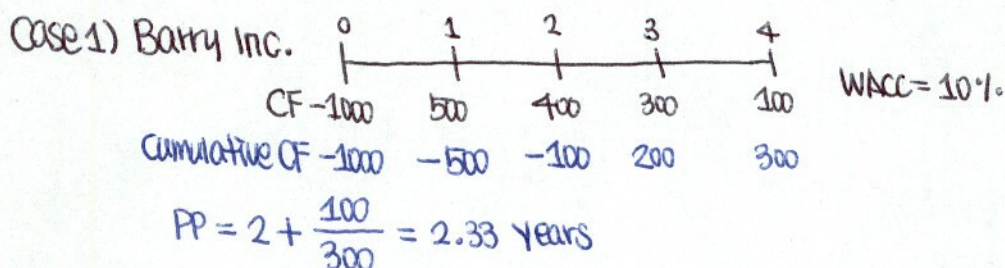 Case 1) Barry Inc. 0 1 2 3 4
CF -1000 500 400 300 100 WACC = 10%
Cumulative CF -1000 -500 -100 200 300
PP = 2 + 100/300 = 2.33 years